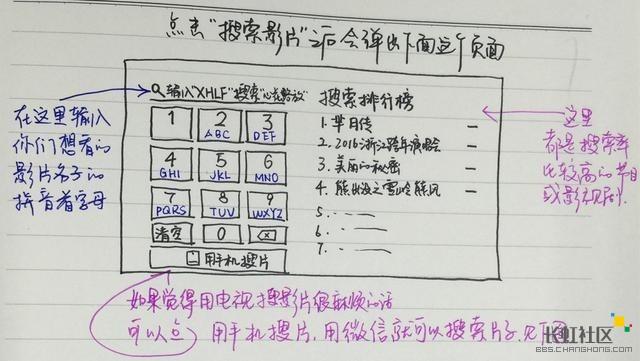 点击“搜索影片”之后会弹出下面这个页面
在这里输入
你们想看的
影片名字的
拼音首字母
输入"XHLF"搜索"心花路放"
1
2
ABC
3
DEF
4
GHI
5
JKL
6
MNO
7
PQRS
8
TUV
9
WXYZ
清空
0
用手机搜片
搜索排行榜
1. 芈月传
2. 2016浙江跨年演唱会
3. 美丽的秘密
4. 熊出没之雪岭熊风
5.
6.
7.
这里
都是搜索率
比较高的节目
或影视剧.
如果觉得用电视搜影片很麻烦的话
可以点 用手机搜片,用微信就可以搜索片子,见下图
长虹社区
BBS.CHANGHONG.COM